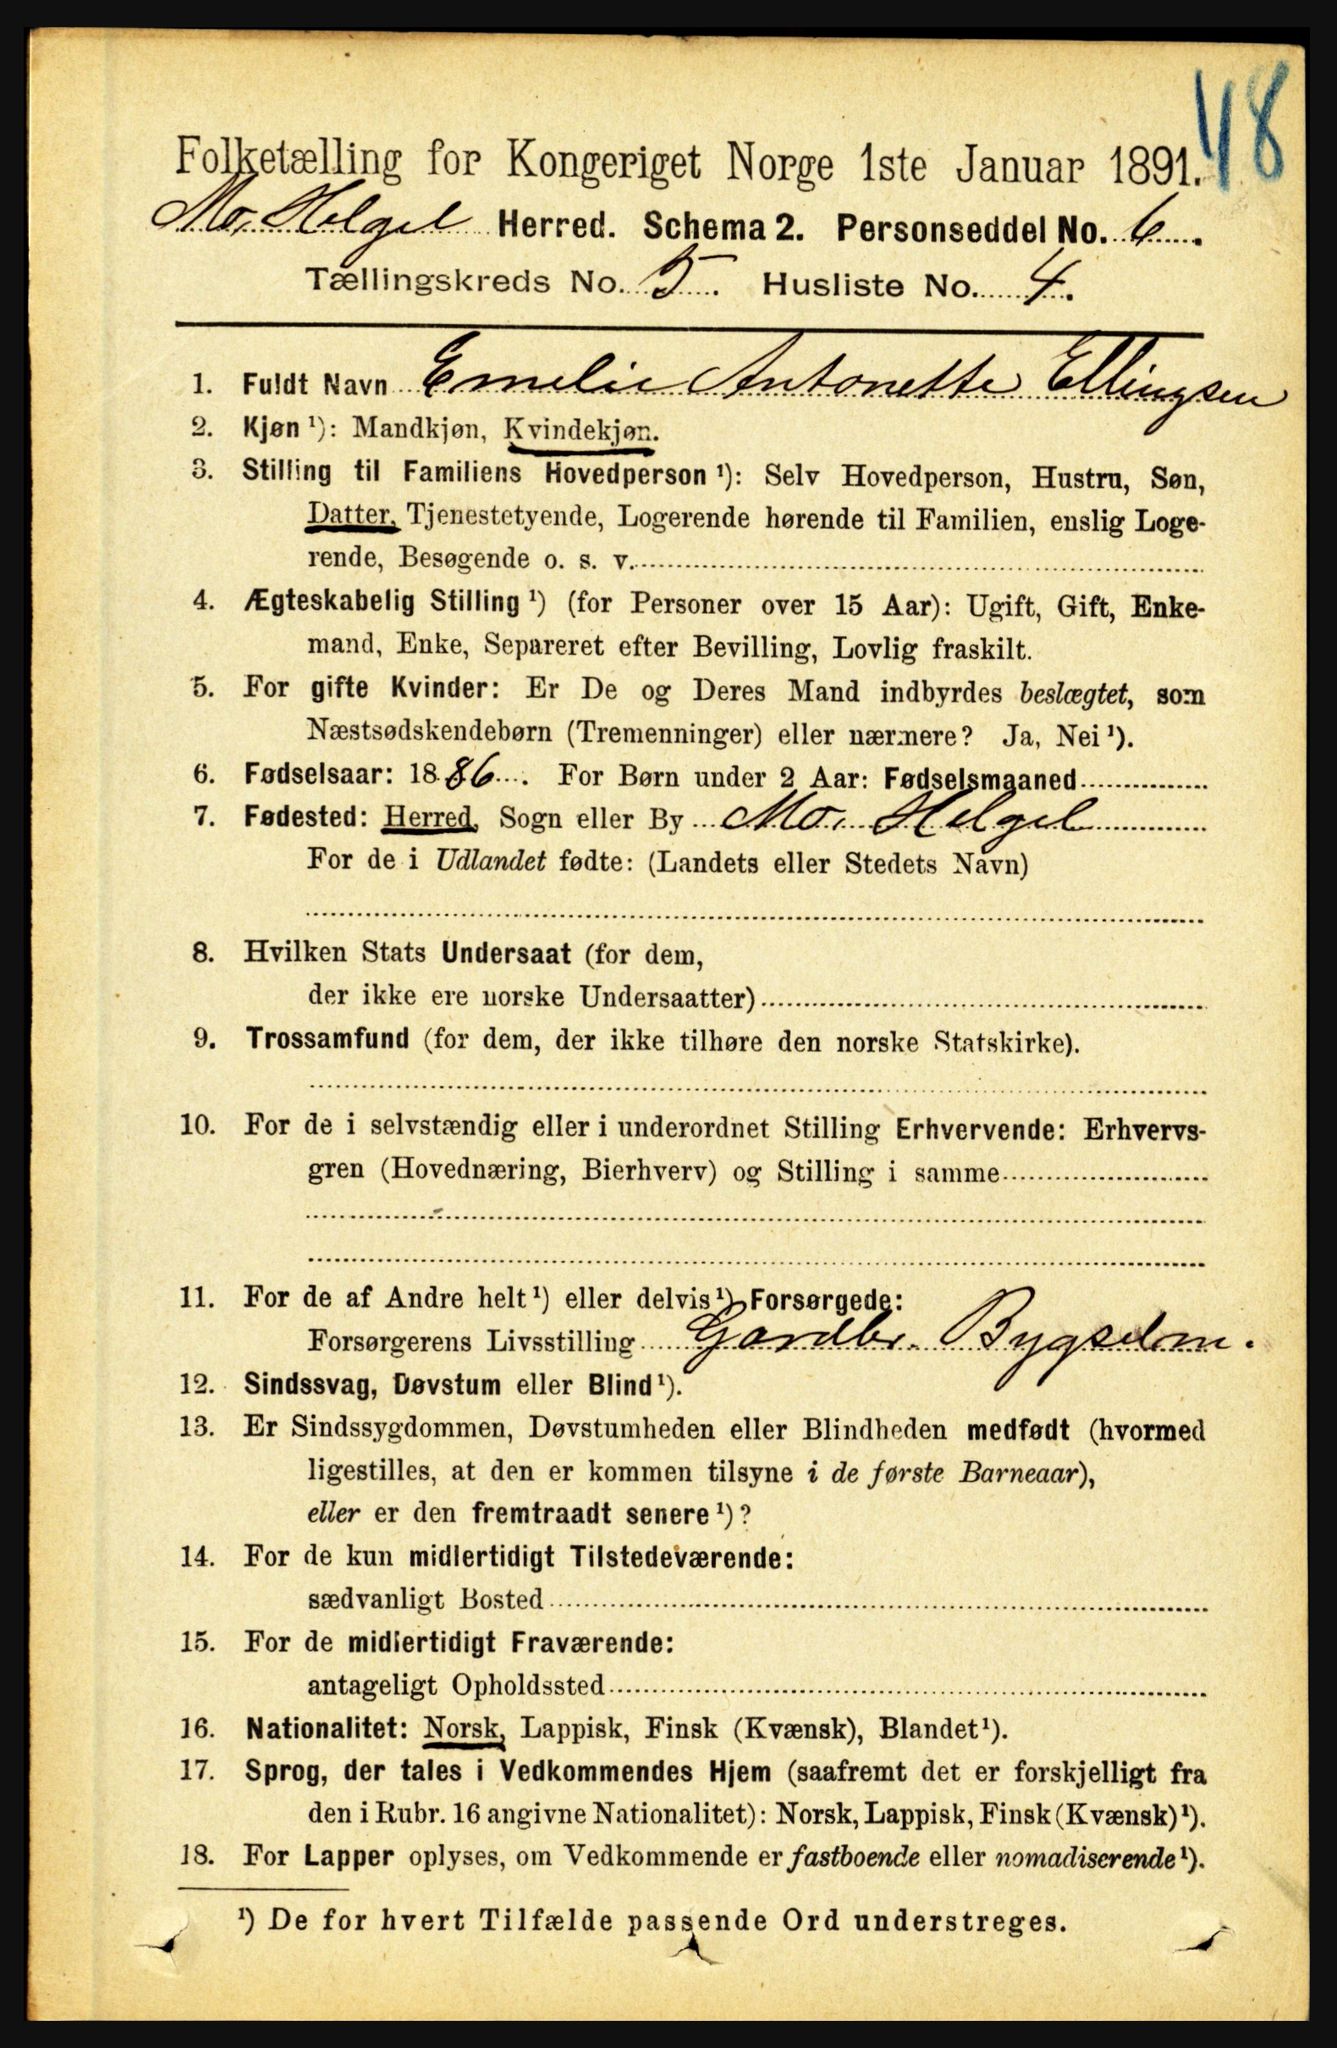 48
Folketælling for Kongeriget Norge 1ste Januar 1891.
Mo, Helgel Herred. Schema 2. Personseddel No. 6.
Tællingskreds No. 5. Husliste No. 4.
1. Fuldt Navn Emelie Antonette Ellingsen
2. Kjøn ¹): Mandkjøn, Kvindekjøn.
3. Stilling til Familiens Hovedperson ¹): Selv Hovedperson, Hustru, Søn,
Datter, Tjenestetyende, Logerende hørende til Familien, enslig Loge-
rende, Besøgende o. s. v.
4. Ægteskabelig Stilling ¹) (for Personer over 15 Aar): Ugift, Gift, Enke-
mand, Enke, Separeret efter Bevilling, Lovlig fraskilt.
5. For gifte Kvinder: Er De og Deres Mand indbyrdes beslægtet, som
Næstsødskendebørn (Tremenninger) eller nærmere? Ja, Nei ¹).
6. Fødselsaar: 1886. For Børn under 2 Aar: Fødselsmaaned
7. Fødested: Herred, Sogn eller By Mo, Helgel
For de i Udlandet fødte: (Landets eller Stedets Navn)
8. Hvilken Stats Undersaat (for dem,
der ikke ere norske Undersaatter)
9. Trossamfund (for dem, der ikke tilhøre den norske Statskirke).
10. For de i selvstændig eller i underordnet Stilling Erhvervende: Erhvervs-
gren (Hovednæring, Bierhverv) og Stilling i samme
11. For de af Andre helt ¹) eller delvis ¹) Forsørgede:
Forsørgerens Livsstilling Gardbr. Bygselm.
12. Sindssvag, Døvstum eller Blind ¹).
13. Er Sindssygdommen, Døvstumheden eller Blindheden medfødt (hvormed
ligestilles, at den er kommen tilsyne i de første Barneaar),
eller er den fremtraadt senere ¹)?
14. For de kun midlertidigt Tilstedeværende:
sædvanligt Bosted
15. For de midlertidigt Fraværende:
antageligt Opholdssted
16. Nationalitet: Norsk, Lappisk, Finsk (Kvænsk), Blandet ¹).
17. Sprog, der tales i Vedkommendes Hjem (saafremt det er forskjelligt fra
den i Rubr. 16 angivne Nationalitet): Norsk, Lappisk, Finsk (Kvænsk) ¹).
18. For Lapper oplyses, om Vedkommende er fastboende eller nomadiserende ¹).
¹) De for hvert Tilfælde passende Ord understreges.